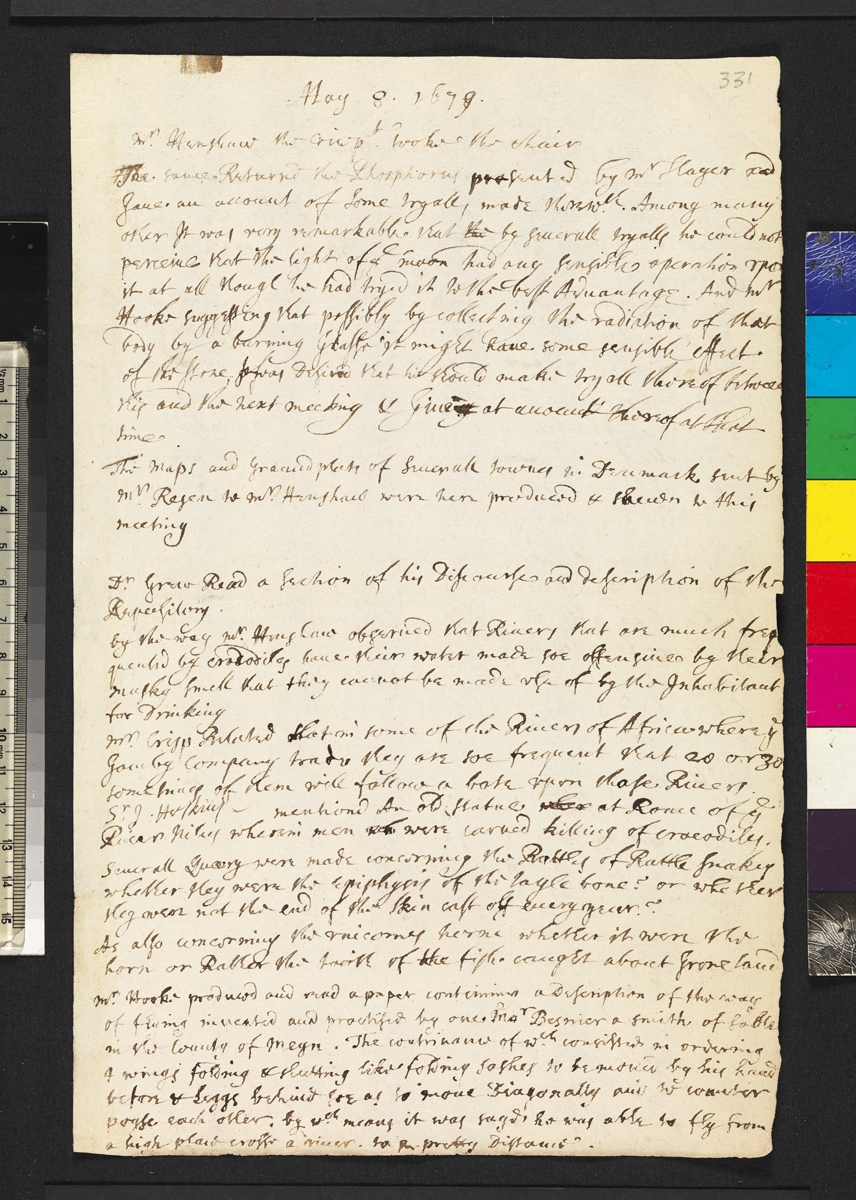 331
May 8. 1679.
Mr. Henshaw the vicept. tooke the chair
The same Returnd the Phosphorus presented by mr Slayer and
Gave an account of some tryalls made therewth. Among many
other It was very remarkable that the by severall tryalls he could not
perceive that the light of ye moon had any sensible operation upon
it at all though he had tryed it to the best Advantage. And mr
Hooke suggesting that possibly by collecting the radiation of that
body by a burning Glasse it might have some sensible effect.
of the stone, It was Desired that he should make tryall thereof between
this and the next meeting & Give at account thereof at that
time.
The maps and Groundplots of severall townes in Denmark sent by
Mr. Regen to Mr. Henshaw were here produced & shewn to this
meeting
Dr Grew Read a section of his Discourse and description of the
Repository.
by the way mr. Henshaw observed that Rivers that are much freq
quented by crocodiles have their water made soe offensive by their
musky smell that they cannot be made use of by the Inhabitant
for Drinking
Mr. Crisp Related that in some of the Rivers of Africa where ye
Gamby Company trade they are soe frequent that 20 or 30
sometimes of them will follow a bote upon those Rivers.
Sr. J. Hoskins mentiond An old statue at Rome of ye
River Nilus wherein men were carved killing of crocodiles.
Severall Query were made concerning the Rattles of Rattle snakes
whether they were the epiphysis of the tayle bone? or whether
they were not the end of the skin cast off every year?
As also concerning the unicornes horne whether it were the
horn or Rather the tooth of the fish caught about Groneland
Mr. Hooke produced and read a paper containing a Description of the way
of flying invented and practised by one Besnier a smith of Sable
in the County of Meyn. The contrivance of wch consisted in ordering
4 wings folding & shutting like folding sashes to be moved by his hands
before & leggs behind soe as to move Diagonally and to counter
poyse each other. by wch means it was sayd he was able to fly from
a high place crosse a river to a pretty Distance.